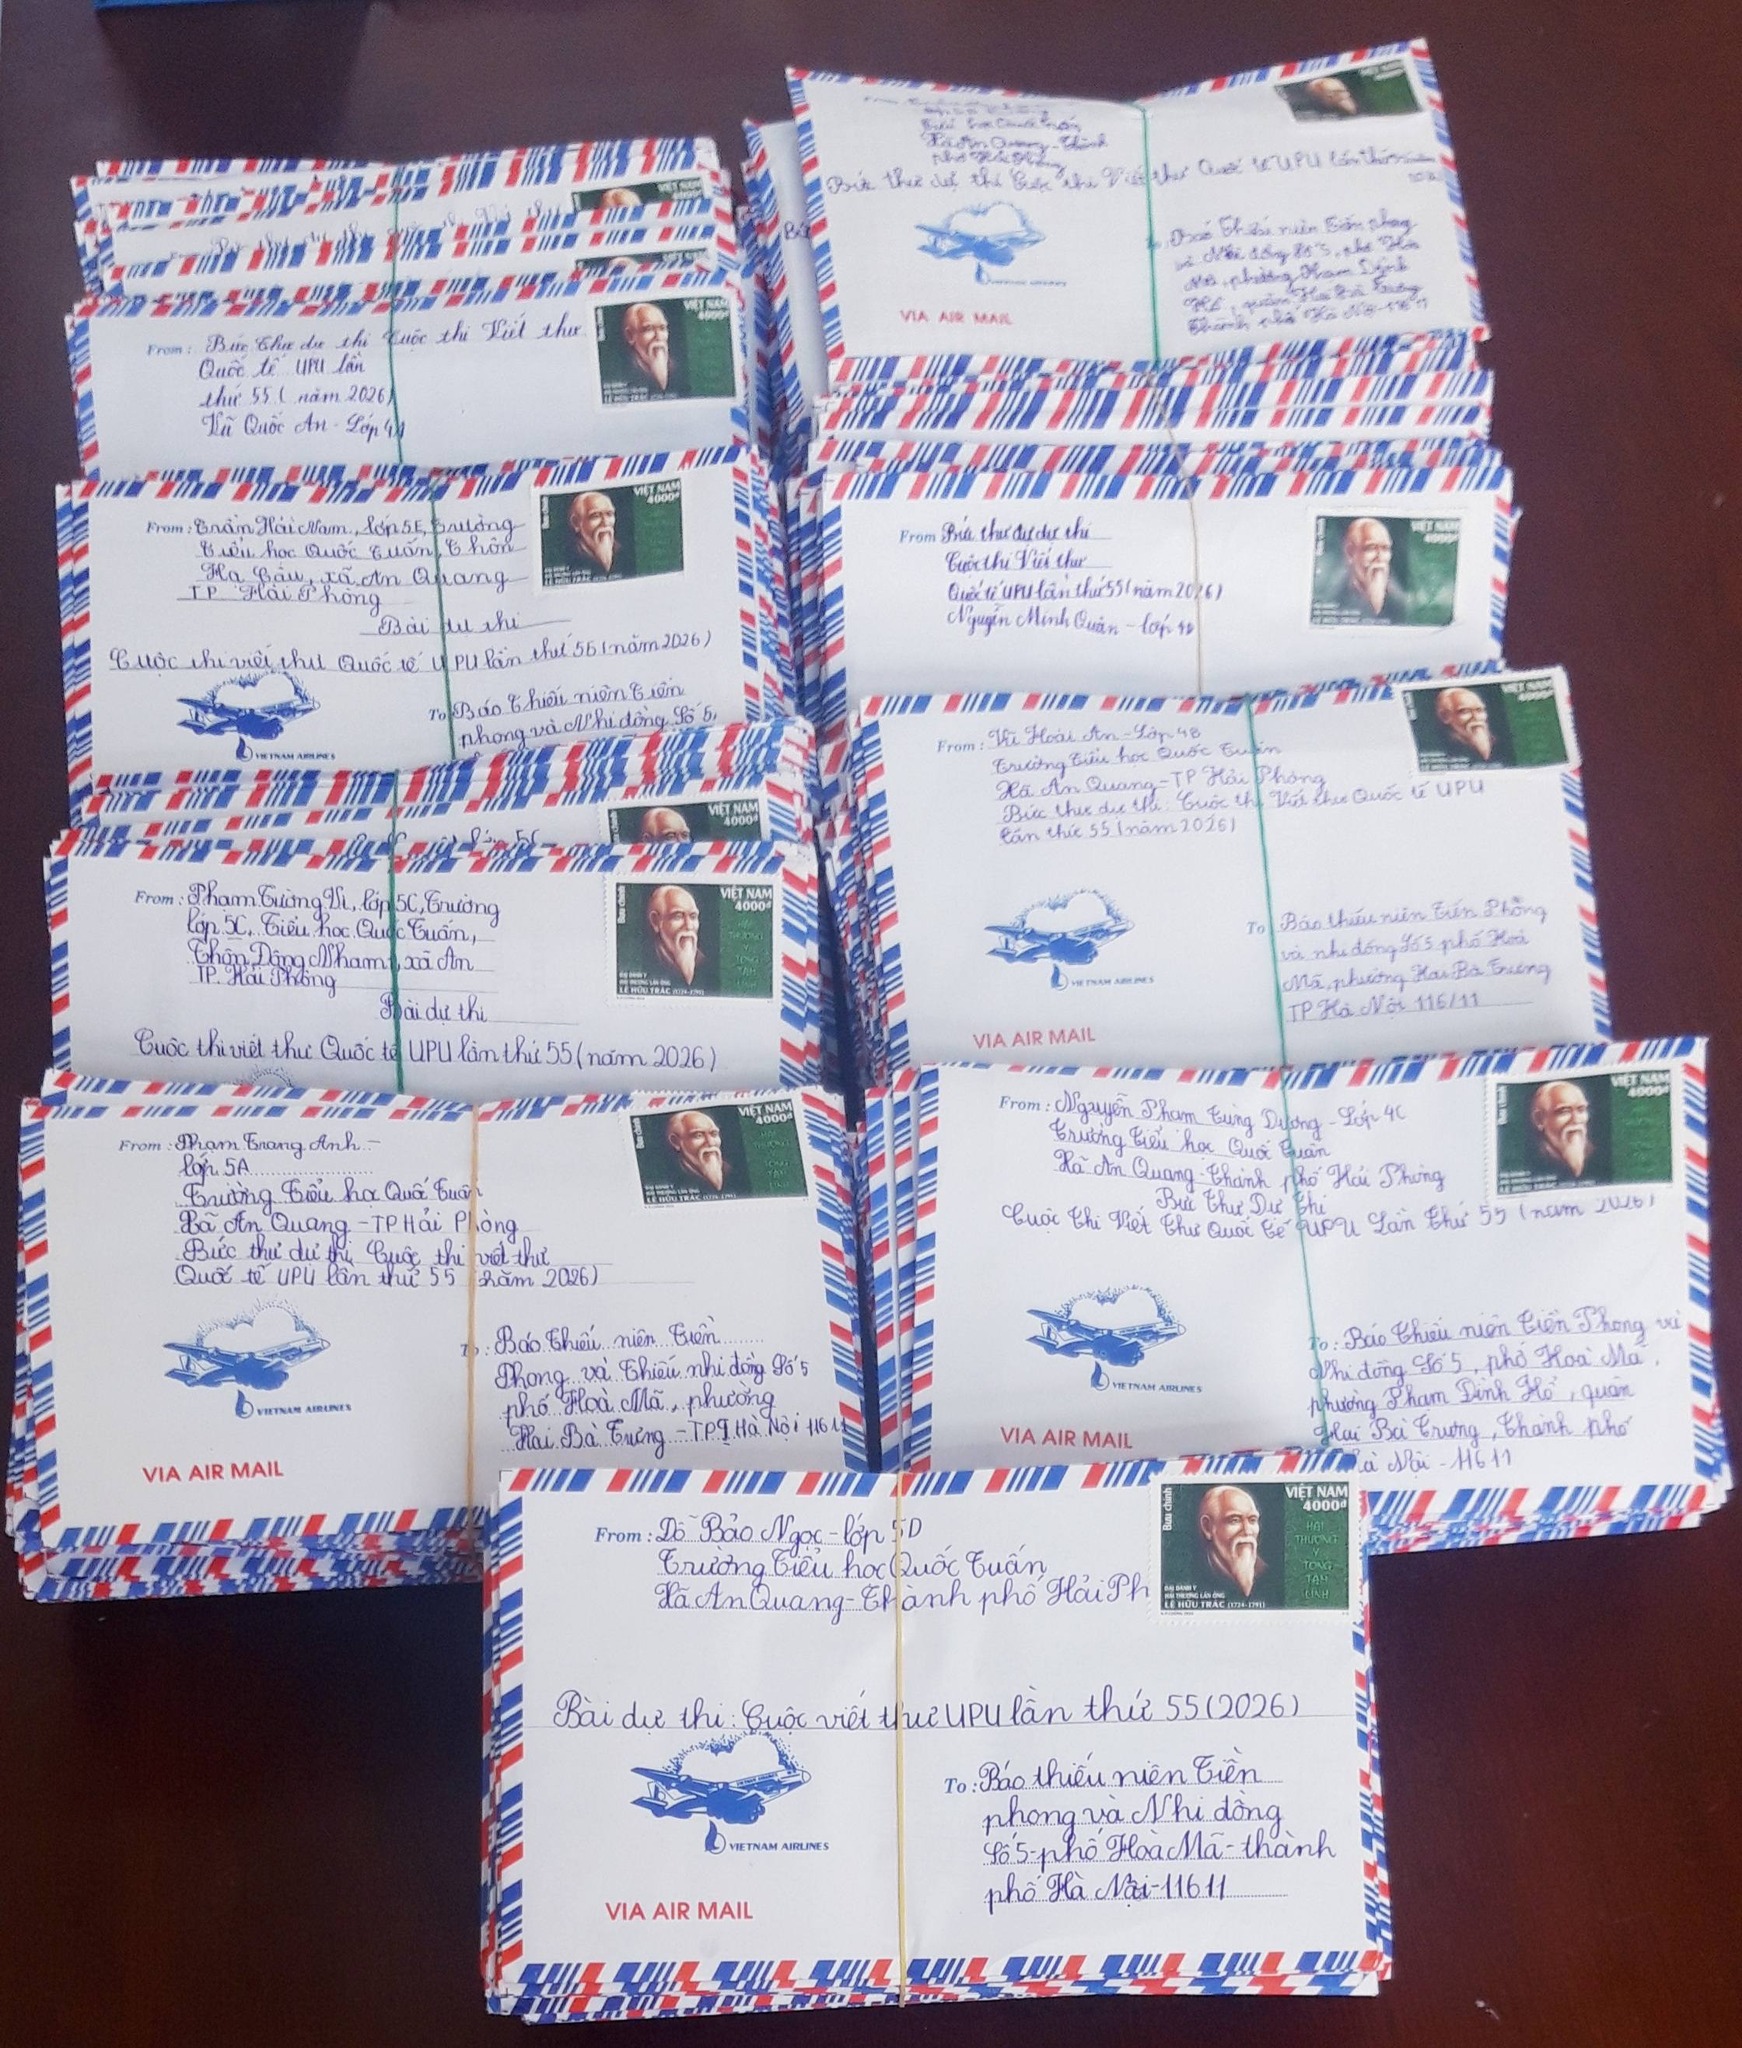 VIỆT NAM
4000đ
Bức thư dự thi Cuộc thi Viết thư Quốc tế UPU lần thứ
VIETNAM AIRLINES
VIA AIR MAIL
VIỆT NAM
4000đ
From: Bức Thư dự thi Cuộc thi Viết thư
Quốc tế UPU lần
thứ 55 ( năm 2026)
Vũ Quốc An - Lớp 4A
VIỆT NAM
4000đ
LÊ HỮU TRÁC
From: Trần Hải Nam, lớp 5E, Trường
Tiểu học Quốc Tuấn, Thôn
Hạ Câu, xã An Quang
TP Hải Phòng
Bài dự thi
Cuộc thi viết thư Quốc tế UPU lần thứ 55 (năm 2026)
To: Báo Thiếu niên Tiền
phong và Nhi đồng Số 5,
VIETNAM AIRLINES
Bưu chính
VIỆT NAM
4000đ
LÊ HỮU TRÁC
VIỆT NAM
4000đ
From: Phạm Tường Vi, lớp 5C, Trường
lớp 5C, Tiểu học Quốc Tuấn,
Thôn Đông Nham, xã An
TP. Hải Phòng
Bài dự thi
Cuộc thi viết thư Quốc tế UPU lần thứ 55 (năm 2026)
Bưu chính
VIỆT NAM
4000đ
HẢI
THƯỢNG
Y
TÔNG
TÂM
LĨNH
ĐẠI DANH Y
HẢI THƯỢNG LÃN ÔNG
LÊ HỮU TRÁC (1724-1791)
From: Phạm Trang Anh -
lớp 5A
Trường Tiểu học Quốc Tuấn
Xã An Quang - TP Hải Phòng
Bức thư dự thi Cuộc thi viết thư
Quốc tế UPU lần thứ 55 năm 2026)
To: Báo Thiếu niên Tiền
Phong và Thiếu nhi đồng Số 5
phố Hoà Mã, phường
Hai Bà Trưng - TP Hà Nội 11611
VIETNAM AIRLINES
VIA AIR MAIL
Bưu chính
VIỆT NAM
4000đ
LÊ HỮU TRÁC (1724-1791)
From Bức thư dự dự thi
Cuộc thi Viết thư
Quốc tế UPU lần thứ 55 (năm 2026)
Nguyễn Minh Quân - lớp 4D
VIỆT NAM
4000đ
From: Vũ Hoài An - Lớp 4B
Trường Tiểu học Quốc Tuấn
Xã An Quang - TP Hải Phòng
Bức thư dự thi: Cuộc thi Viết thư Quốc tế UPU
lần thứ 55 (năm 2026)
To Báo thiếu niên Tiền Phong
và nhi đồng Số 5 phố Hoà
Mã, phường Hai Bà Trưng
TP Hà Nội 116/11
VIETNAM AIRLINES
VIA AIR MAIL
VIỆT NAM
4000đ
From: Nguyễn Phạm Tùng Dương - Lớp 4C
Trường Tiểu học Quốc Tuấn
Xã An Quang - Thành phố Hải Phòng
Bức Thư Dự Thi
Cuộc Thi Viết Thư Quốc Tế UPU Lần Thứ 55 (năm 2026)
To: Báo Thiếu niên Tiền Phong và
Nhi đồng Số 5, phố Hoà Mã,
phường Phạm Đình Hổ, quận
Hai Bà Trưng, Thành phố
Hà Nội - 11611
VIETNAM AIRLINES
VIA AIR MAIL
VIỆT NAM
4000đ
From: Đỗ Bảo Ngọc - lớp 5D
Trường Tiểu học Quốc Tuấn
Xã An Quang - Thành phố Hải Ph
Bài dự thi: Cuộc viết thư UPU lần thứ 55 (2026)
To: Báo thiếu niên Tiền
phong và Nhi đồng
Số 5 - phố Hoà Mã - thành
phố Hà Nội - 11611
VIETNAM AIRLINES
VIA AIR MAIL
Bưu chính
VIỆT NAM
4000đ
HẢI
THƯỢNG
Y
TÔNG
TÂM
LĨNH
ĐẠI DANH Y
HẢI THƯỢNG LÃN ÔNG
LÊ HỮU TRÁC (1724-1791)